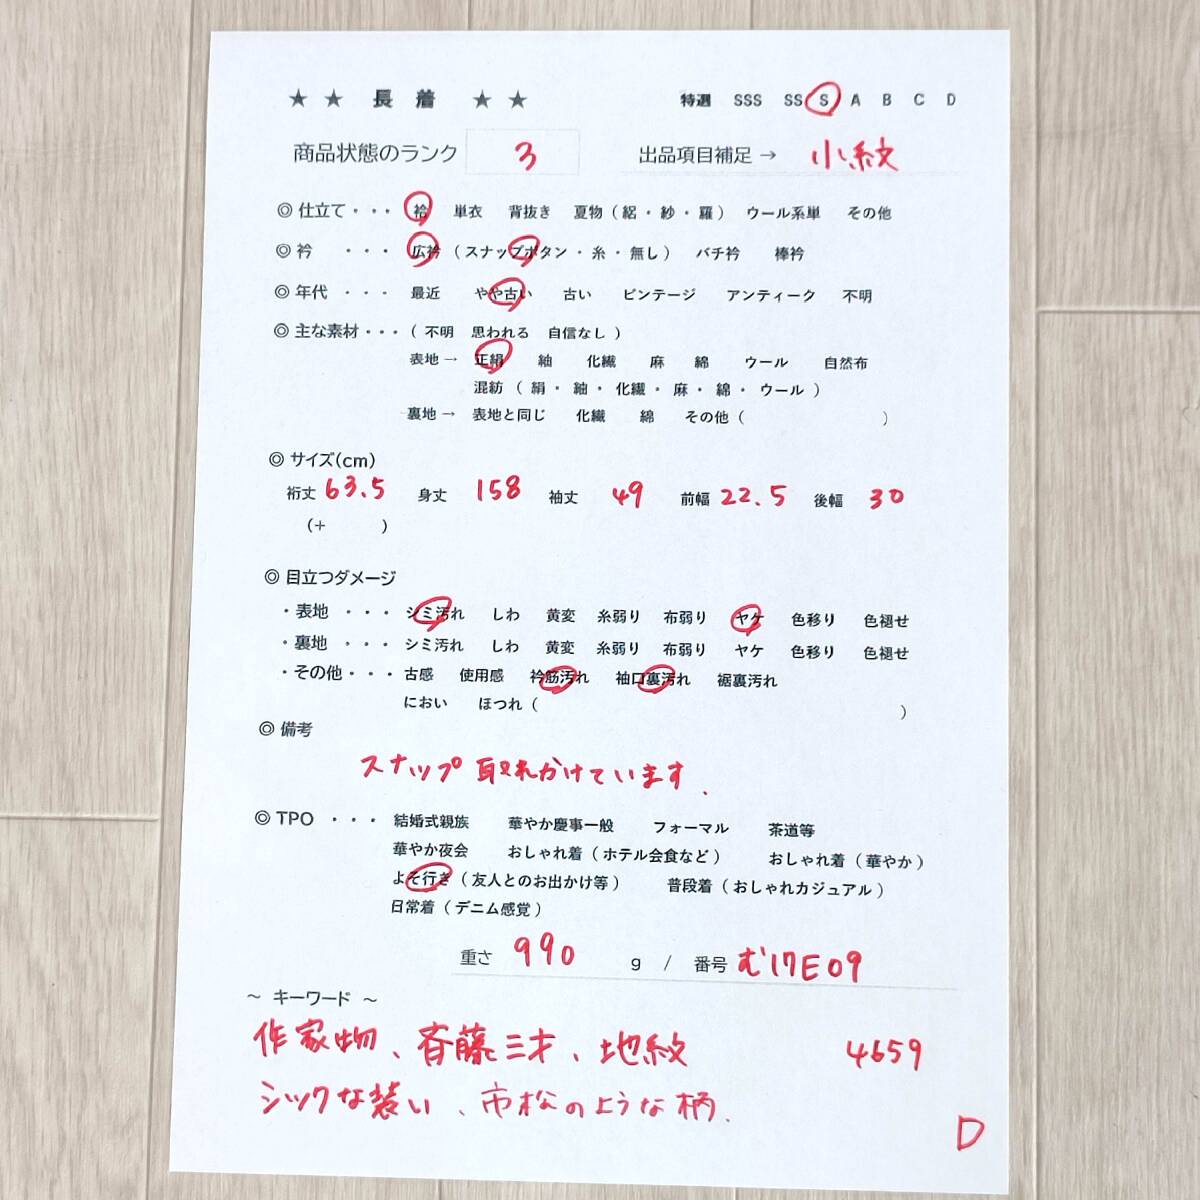 ★ ★ 長 着 ★ ★ 特選 SSS SS S A B C D
商品状態のランク 3 出品項目補足 → 小紋
◎ 仕立て・・・ 袷 単衣 背抜き 夏物（絽・紗・羅） ウール系単 その他
◎ 衿 ・・・ 広衿（スナップボタン・糸・無し） バチ衿 棒衿
◎ 年代 ・・・ 最近 やや古い 古い ビンテージ アンティーク 不明
◎ 主な素材・・・（不明 思われる 自信なし）
表地→ 正絹 紬 化繊 麻 綿 ウール 自然布
混紡（絹・紬・化繊・麻・綿・ウール）
裏地→ 表地と同じ 化繊 綿 その他（ ）
◎ サイズ(cm)
裄丈 63.5 身丈 158 袖丈 49 前幅 22.5 後幅 30
（+ ）
◎ 目立つダメージ
・表地 ・・・ シミ汚れ しわ 黄変 糸弱り 布弱り ヤケ 色移り 色褪せ
・裏地 ・・・ シミ汚れ しわ 黄変 糸弱り 布弱り ヤケ 色移り 色褪せ
・その他・・・ 古感 使用感 衿筋汚れ 袖口裏汚れ 裾裏汚れ
におい ほつれ（ ）
◎ 備考
スナップ取れかけています.
◎ TPO ・・・ 結婚式親族 華やか慶事一般 フォーマル 茶道等
華やか夜会 おしゃれ着（ホテル会食など） おしゃれ着（華やか）
よそ行き（友人とのお出かけ等） 普段着（おしゃれカジュアル）
日常着（デニム感覚）
重さ 990 g / 番号 む17E09
～ キーワード ～
作家物、斉藤三才、地紋 4659
シックな装い、市松のような柄.
D